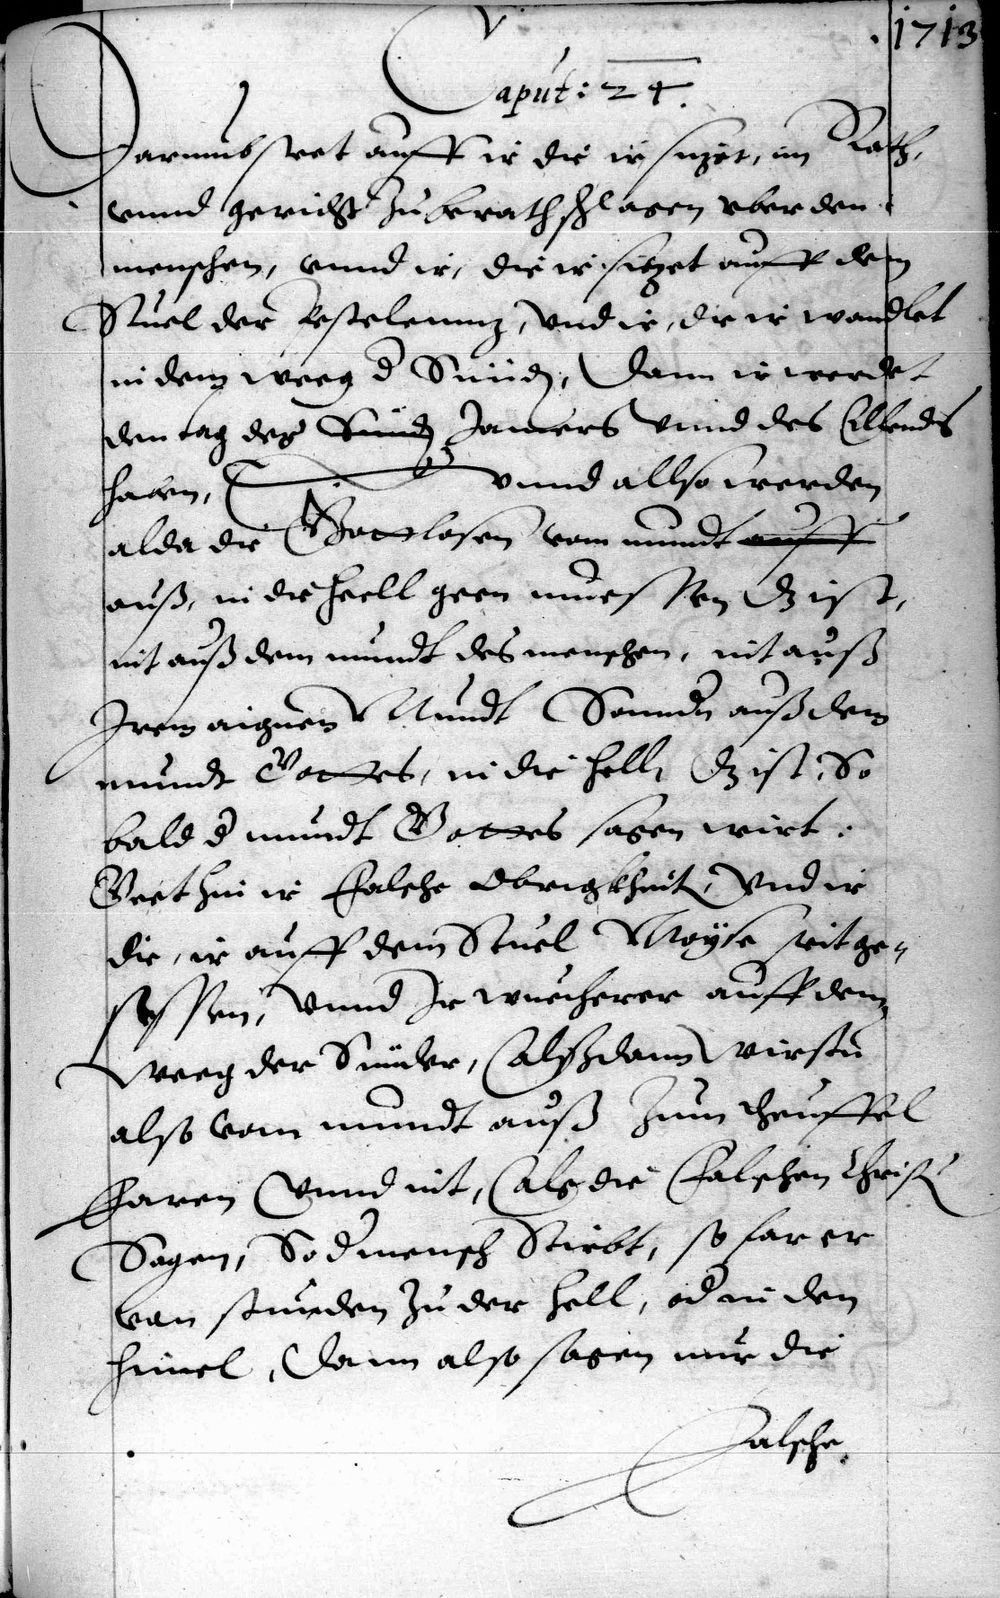 1713
Caput: 24.
Darumb stet auff ir die ir sizet, im Rath,
vnnd gericht zu berathschlagen vber den
menschen, vnnd ir, die ir sitzet auff dem
Stuel der Pestelenntz, vnd ir, die ir wandlet
in dem weeg d Sünd, Dann ir werdet
den tag des Sünd Jamers vnnd des Ellendts
haben, vnnd allso werden
alda die Gottlosen vom mundt auff
auß, in die heell geen muessen Dz ist,
nit auß dem mundt des menschen, nit auß
Irem aignen Mundt Sonndn auß dem
mundt Gottes, in die hell, Dz ist, So
bald d mundt Gottes sagen wirt:
Geet hin ir Falsche Obrigkheit, Vnd ir
die, ir auff dem Stuel Moÿse seit ge„
sessen, Vnnd Ir wuecherer auff dem
Weeg der Sünder, Alßdann wirstu
also vom mundt auß zum theuffel
Faren Vnnd nit, Als die Falschen Christ
Sagen, So d mensch Stirbt, so far er
von stunden zu der hell, od in den
himel, Dann also sagen nur die
Falsche.